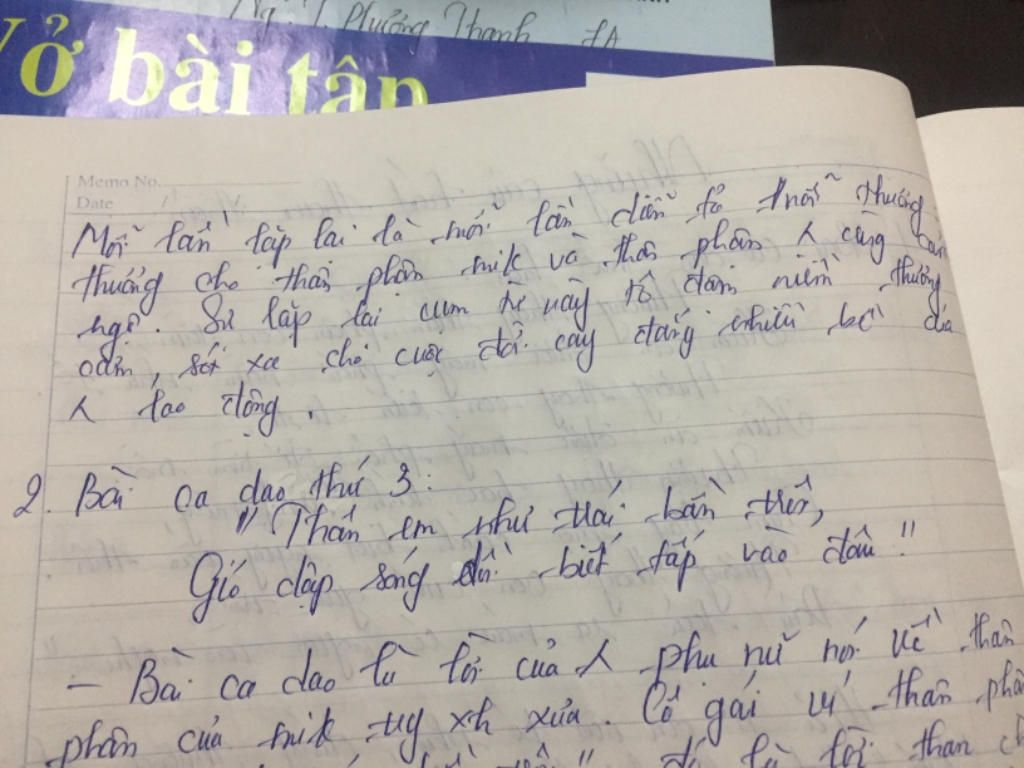 Ng. T. Phương Thanh
Vở bài tập
Memo No.
Date
Mỗi lần lặp lại là mỗi lần diễn tả 1 nỗi thương
thương cho thân phận mik và thân phận λ cùng cảnh
ngộ. Sự lặp lại cụm từ này tô đậm niềm thương
cảm, xót xa cho cuộc đời cay đắng nhiều bề của
λ lao động.
2. Bài ca dao thứ 3:
"Thân em như trái bần trôi,
Gió dập sóng dồi biết tấp vào đâu"
- Bài ca dao là lời của λ phụ nữ nói về thân
phận của mik xh xưa. Cô gái ví thân phận
đó là lời than